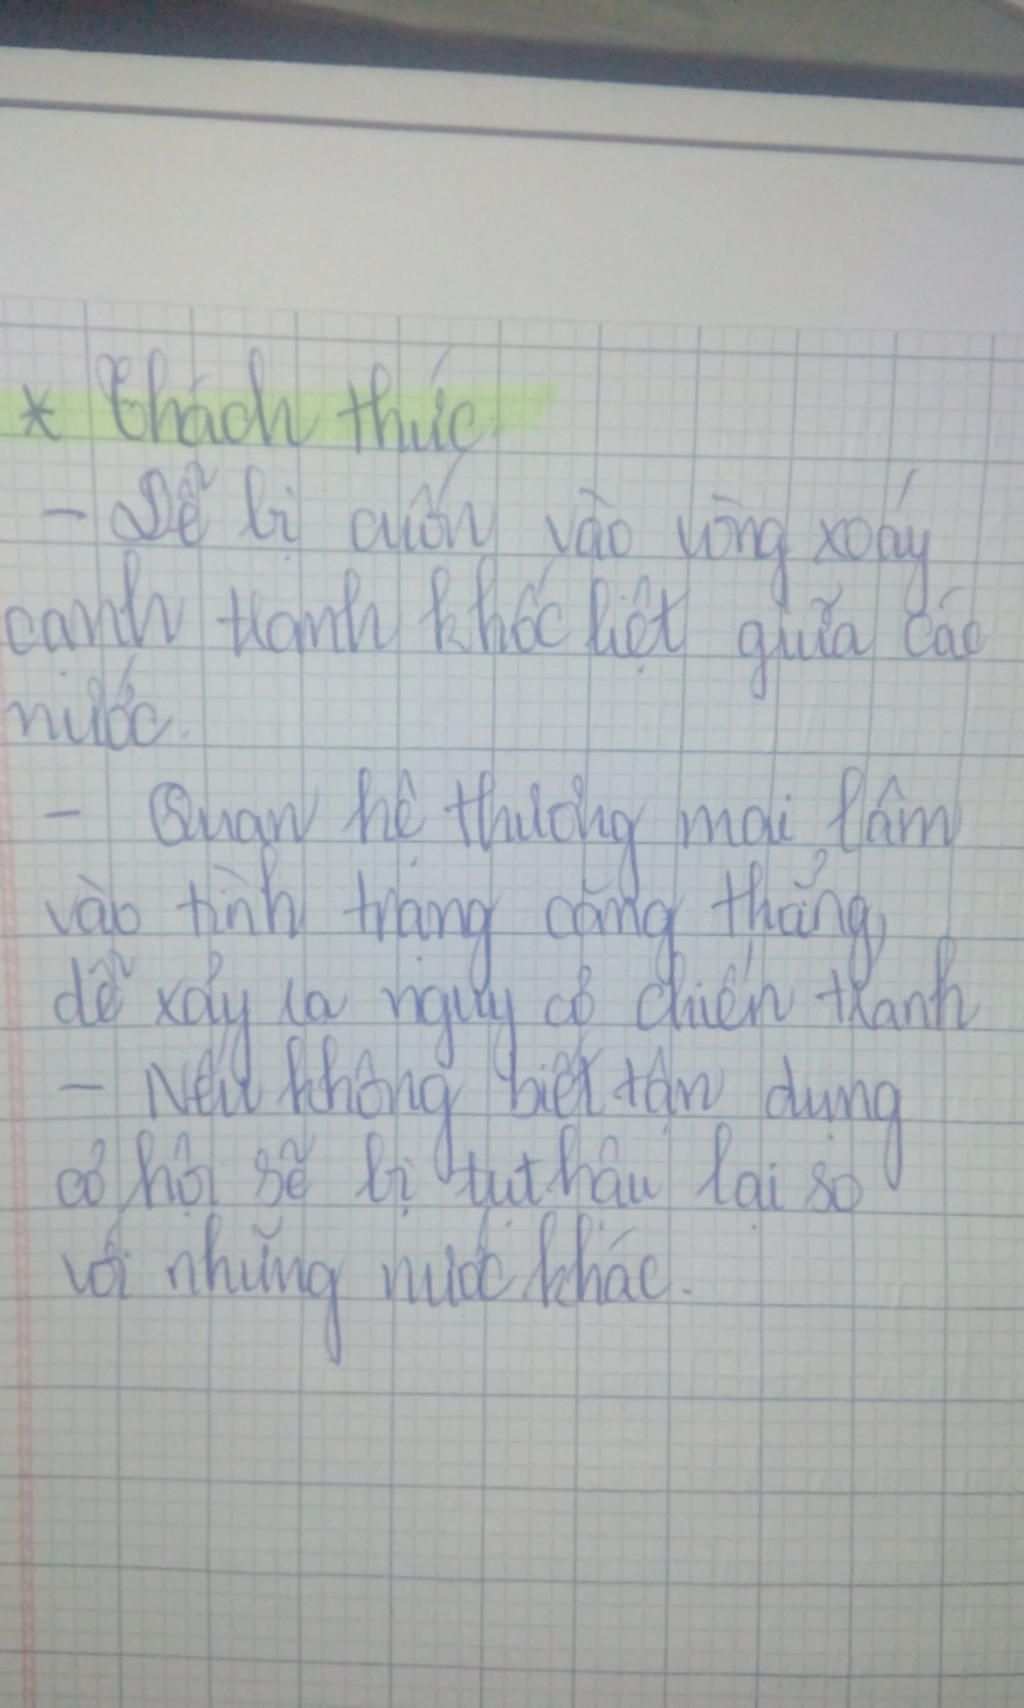 * Thách thức.
- Dễ bị cuốn vào vòng xoáy
canh tranh khốc liệt giữa các
nước.
- Quan hệ thương mại lâm
vào tình trạng căng thẳng,
dễ xảy ra nguy cơ chiến tranh
- Nếu không biết tận dụng
cơ hội sẽ bị tụt hậu lại so
với những nước khác.